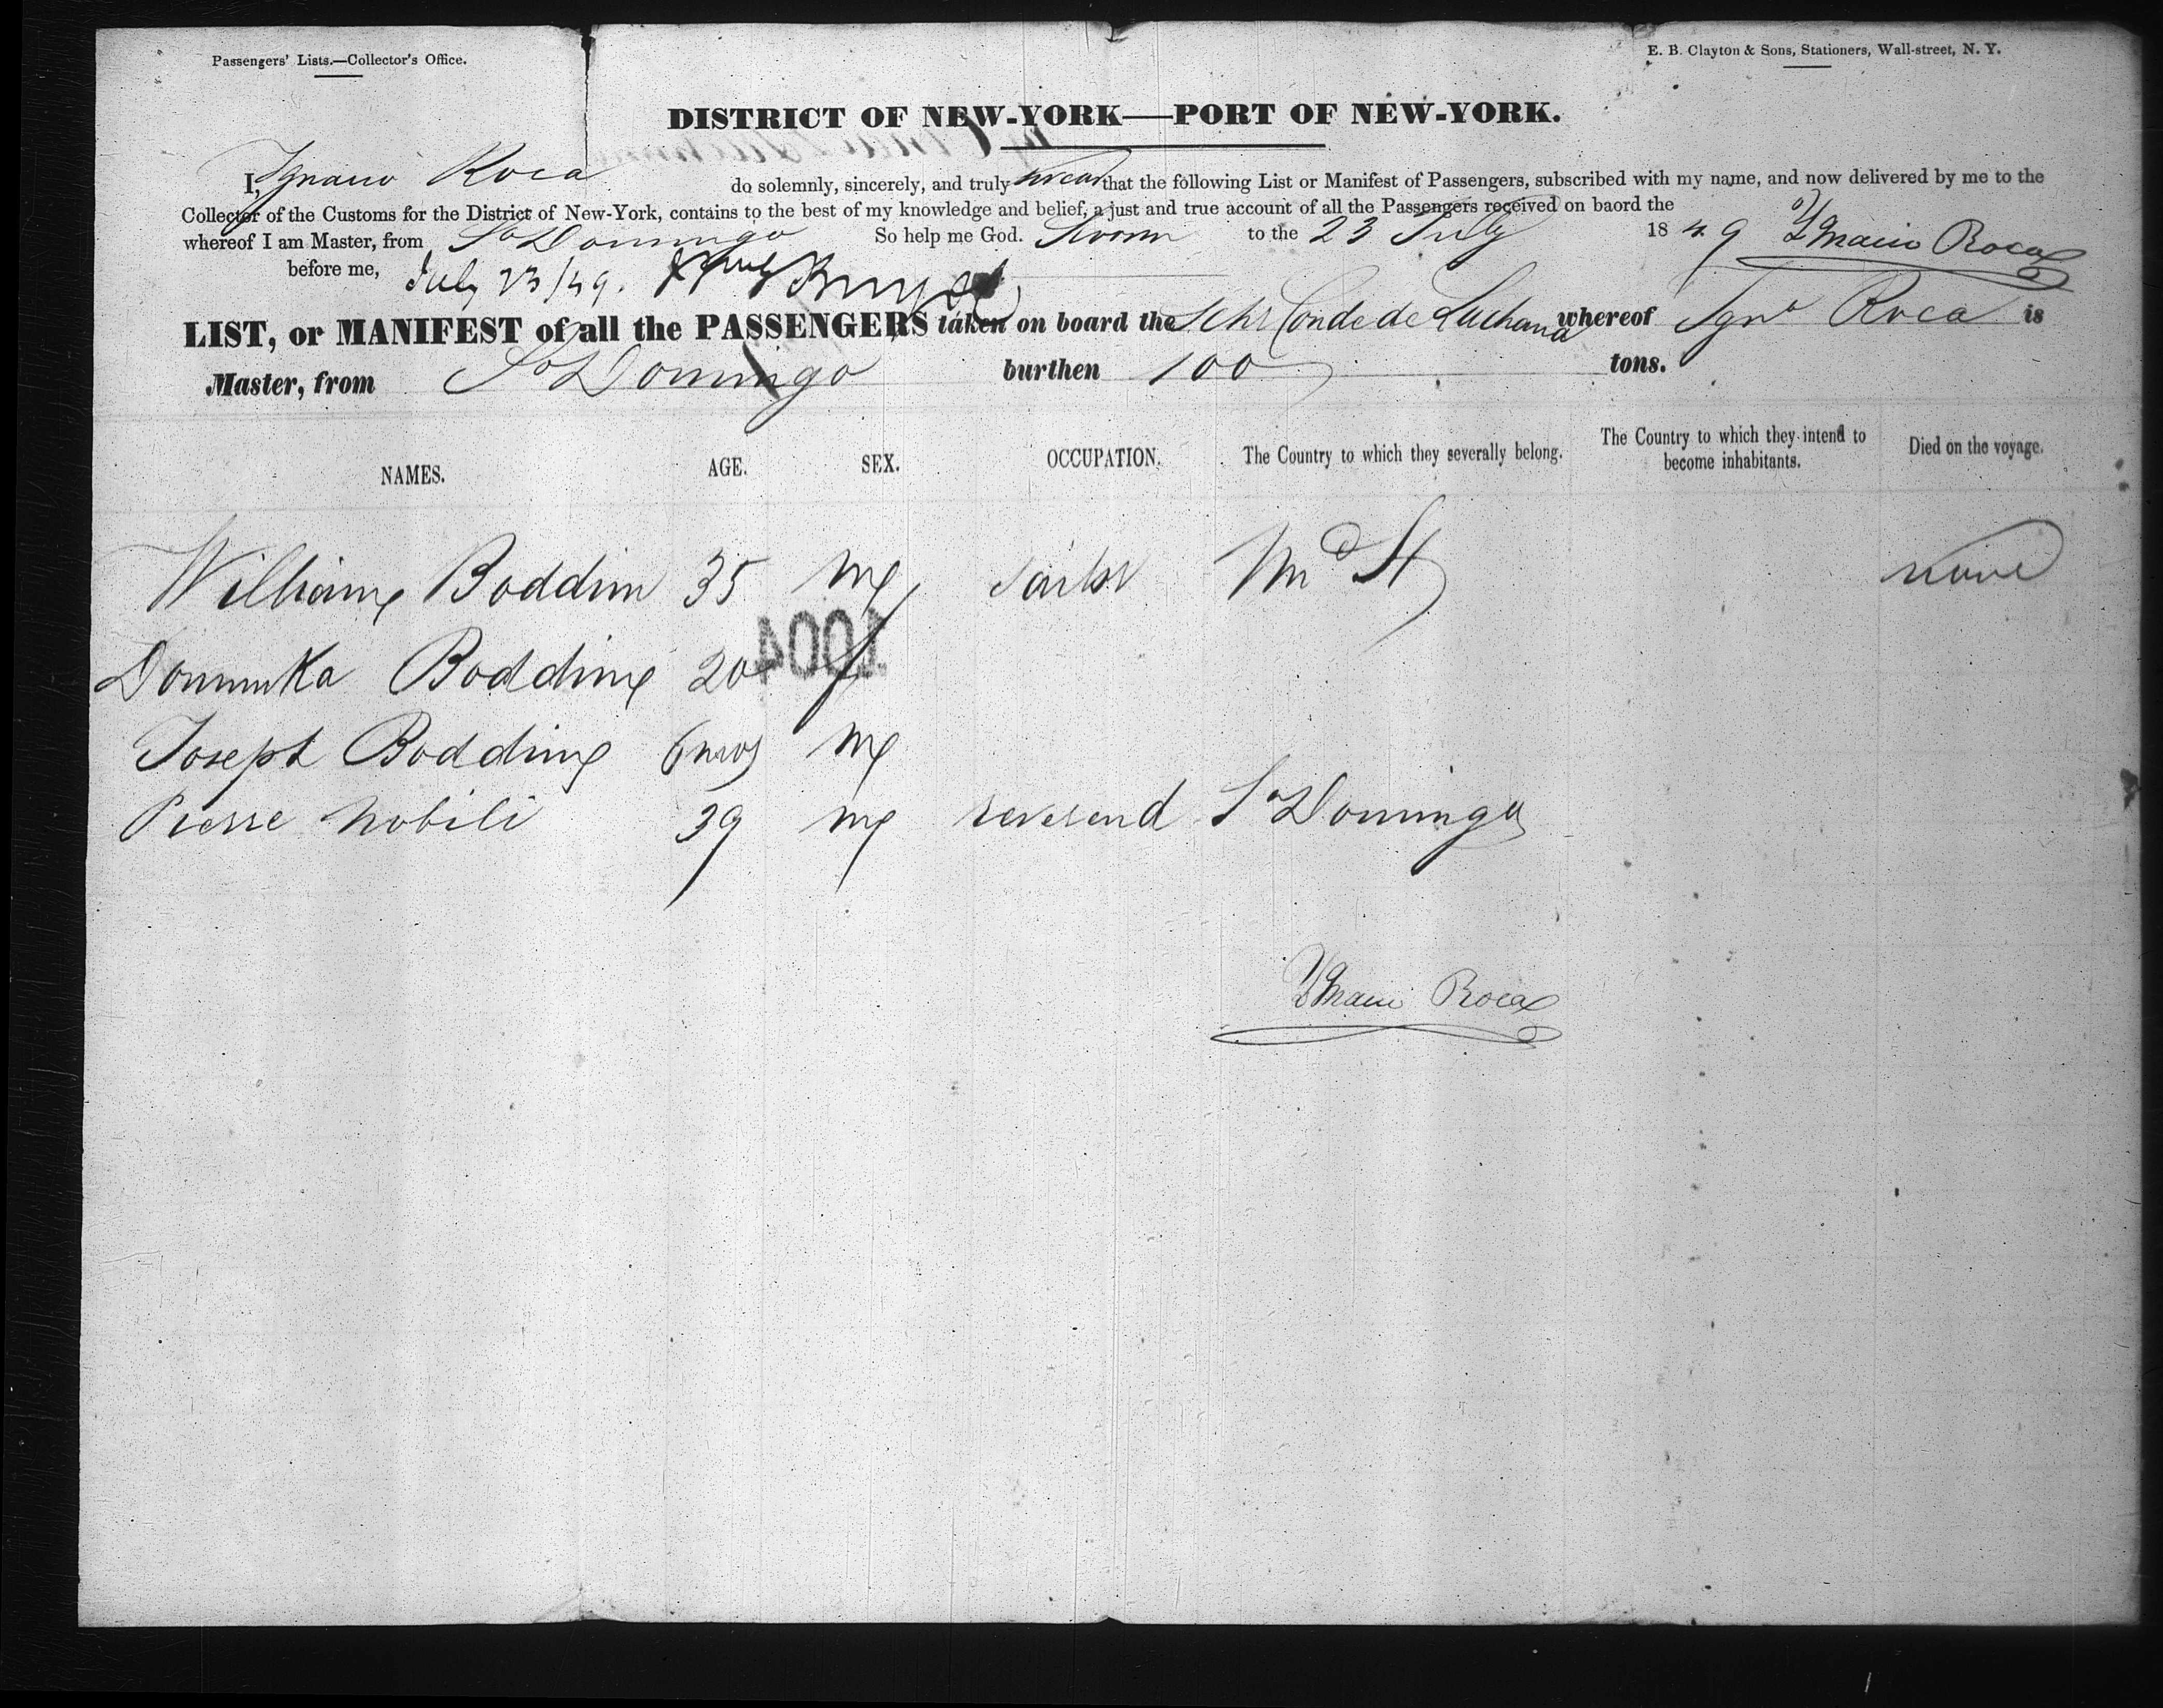 Passengers' Lists.—Collector's Office.
E. B. Clayton & Sons, Stationers, Wall-street, N. Y.
DISTRICT OF NEW-YORK—PORT OF NEW-YORK.
I, Ignacio Roca do solemnly, sincerely, and truly swear that the following List or Manifest of Passengers, subscribed with my name, and now delivered by me to the
Collector of the Customs for the District of New-York, contains to the best of my knowledge and belief, a just and true account of all the Passengers received on baord the
whereof I am Master, from Sto Domingo So help me God. Sworn to the 23 July 1849 Ygnacio Roca
before me, July 23/49.
LIST, or MANIFEST of all the PASSENGERS taken on board the Schr Conde de Luchana whereof Igno Roca is
Master, from Sto Domingo burthen 100 tons.
NAMES. AGE. SEX. OCCUPATION. The Country to which they severally belong. The Country to which they intend to become inhabitants. Died on the voyage.
William Boddim 35 m sailor none
1004
Bodding 20 f
Joseph Bodding 6 mos m
Pierre Nobili 39 m reverend Sto Domingo
Ygnacio Roca